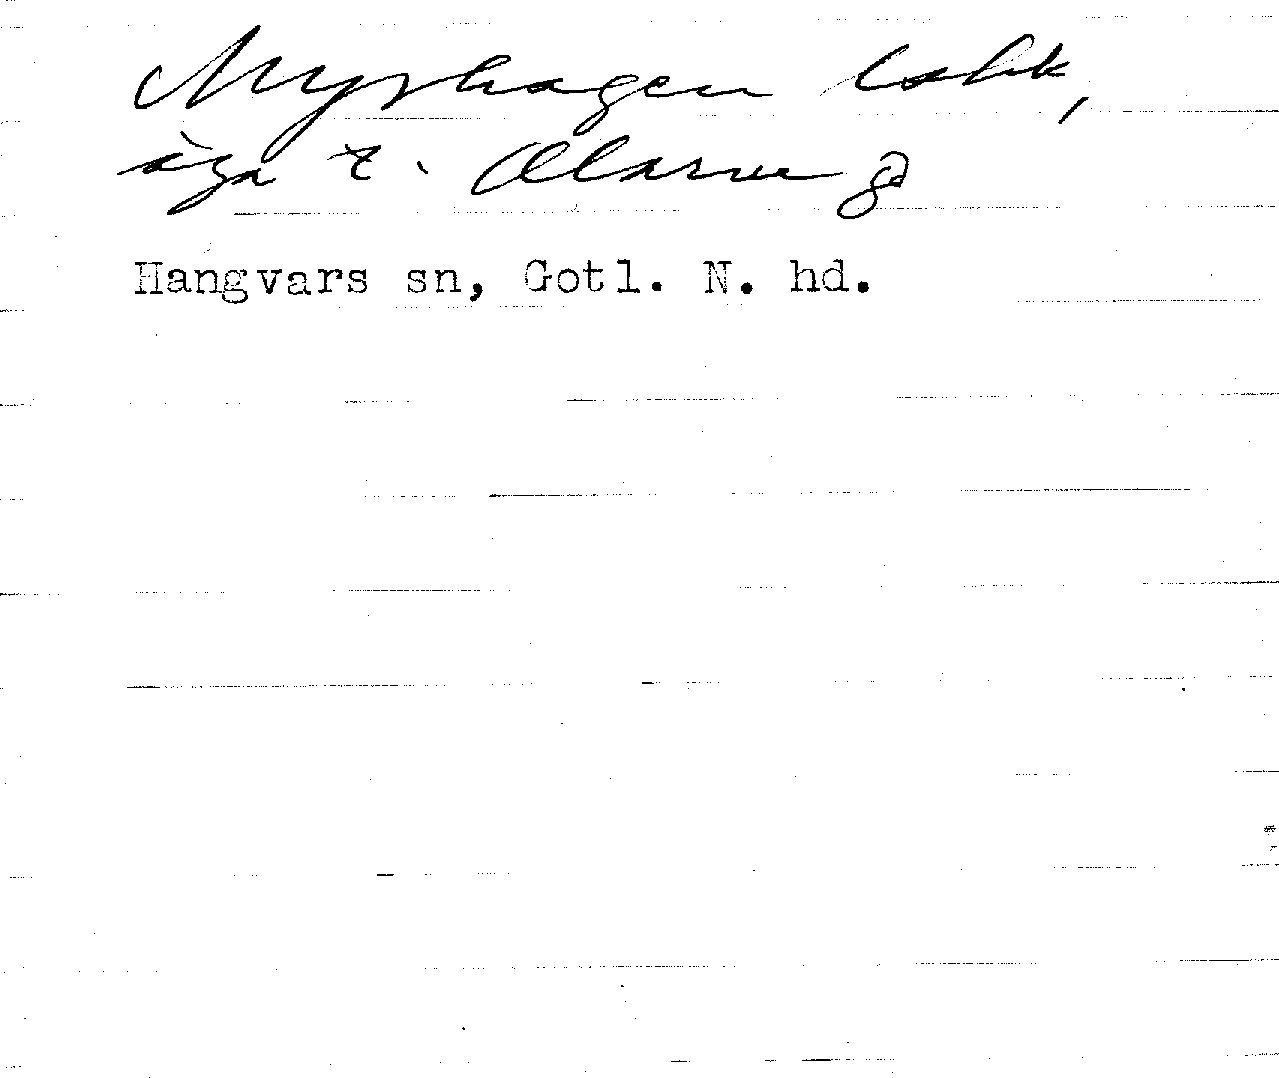 Myrhagen
äga t. Olarve
Hangvars sn, Gotl. N. hd.